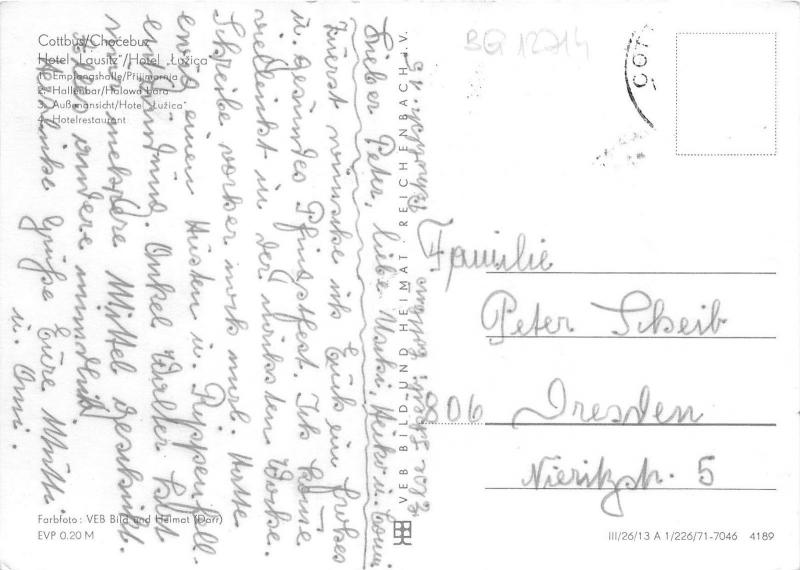 BG 12714
COT
Cottbus/Chośebuz
Hotel „Lausitz"/Hotel „Łužica"
1. Empfangshalle/Pśijimarnja
2. Hallenbar/Halowa bara
3. Außenansicht/Hotel „Łužica"
4. Hotelrestaurant
Lieber Peter, liebe Uski, Heiko u. Conni
Zuerst wünsche ich Euch ein frohes
u. gesundes Pfingstfest. Ich komme
vielleicht in der nächsten Woche.
Schreibe vorher noch mal. Hatte
einen Husten u. Rippenfell-
entzündung. Onkel Walter hat
mir mehrere Mittel geschickt.
Alles andere mündlich
Herzliche Grüße Eure Mutti
u. Omi.
VEB BILD UND HEIMAT REICHENBACH i. V.
Familie
Peter Scheib
806 Dresden
Nieritzstr. 5
Farbfoto: VEB Bild und Heimat (Darr)
EVP 0.20 M
III/26/13 A 1/226/71-7046 4189